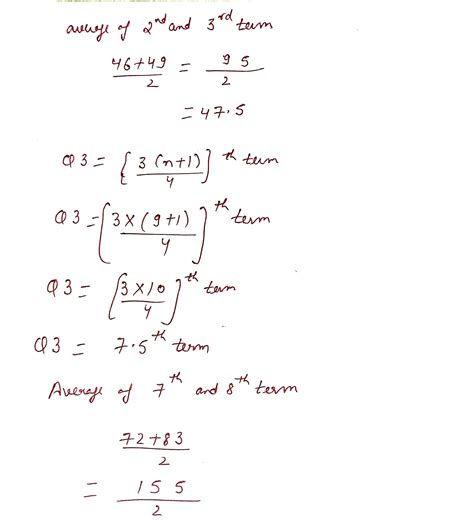 average of 2nd and 3rd term
46+49/2 = 95/2
= 47.5
Q3 = {3(n+1)/4}th term
Q3 = [3×(9+1)/4]th term
Q3 = [3×10/4]th term
Q3 = 7.5th term
Average of 7th and 8th term
72+83/2
= 155/2